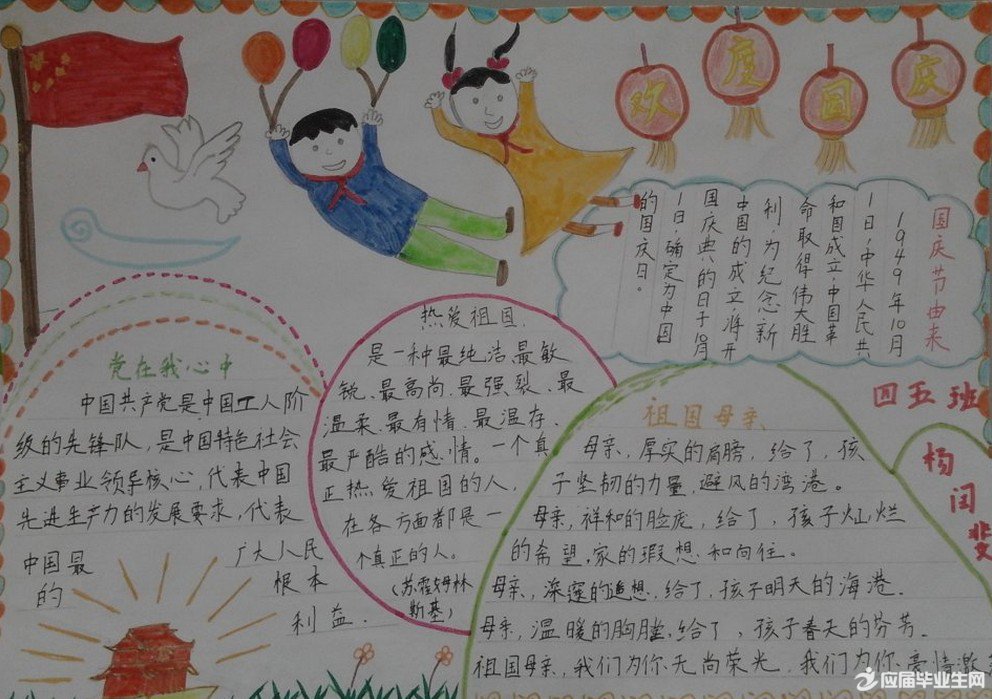 欢度国庆
国庆节由来
1949年10月
1日,中华人民共
和国成立,中国革
命取得伟大胜
利,为纪念新
中国的成立,将开
国庆典的日子10月
1日,确定为中国
的国庆日。
四五班
杨闰斐
党在我心中
中国共产党是中国工人阶
级的先锋队,是中国特色社会
主义事业领导核心,代表中国
先进生产力的发展要求,代表
中国最广大人民
的根本
利益.
热爱祖国.
是一种最纯洁、最敏
锐、最高尚、最强裂、最
温柔、最有情、最温存、
最严酷的感情。一个真
正热爱祖国的人,
在各方面都是一
个真正的人。
(苏霍姆林
斯基)
祖国母亲
母亲,厚实的肩膀,给了,孩
子坚韧的力量,避风的湾港。
母亲,祥和的脸庞,给了,孩子灿烂
的希望,家的瑕想,和向往。
母亲,深邃的遐想,给了,孩子明天的海港.
母亲,温暖的胸膛,给了,孩子春天的芬芳.
祖国母亲,我们为你无尚荣光,我们为你豪情激
应届毕业生网